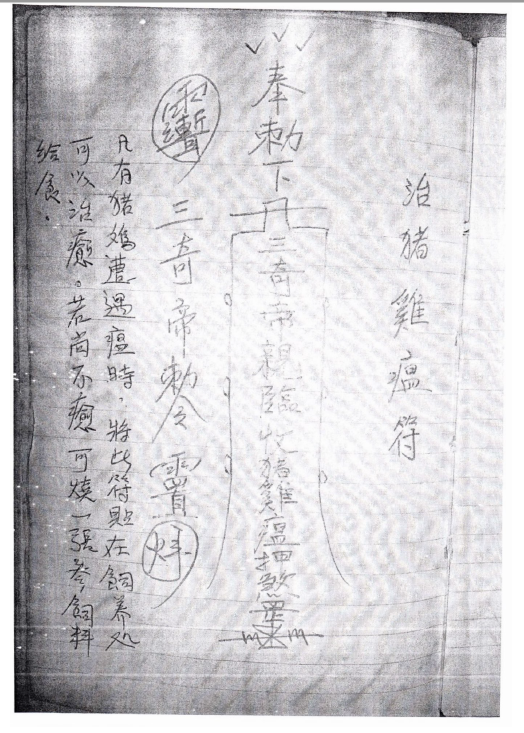 治猪雞瘟符
奉勅下
三奇帝親臨收猪雞瘟押煞罡
三奇帝勅令
凡有猪鸡遭遇瘟時，將此符貼在飼养处
可以治癒。若尚不癒可燒一張参飼料
给食。